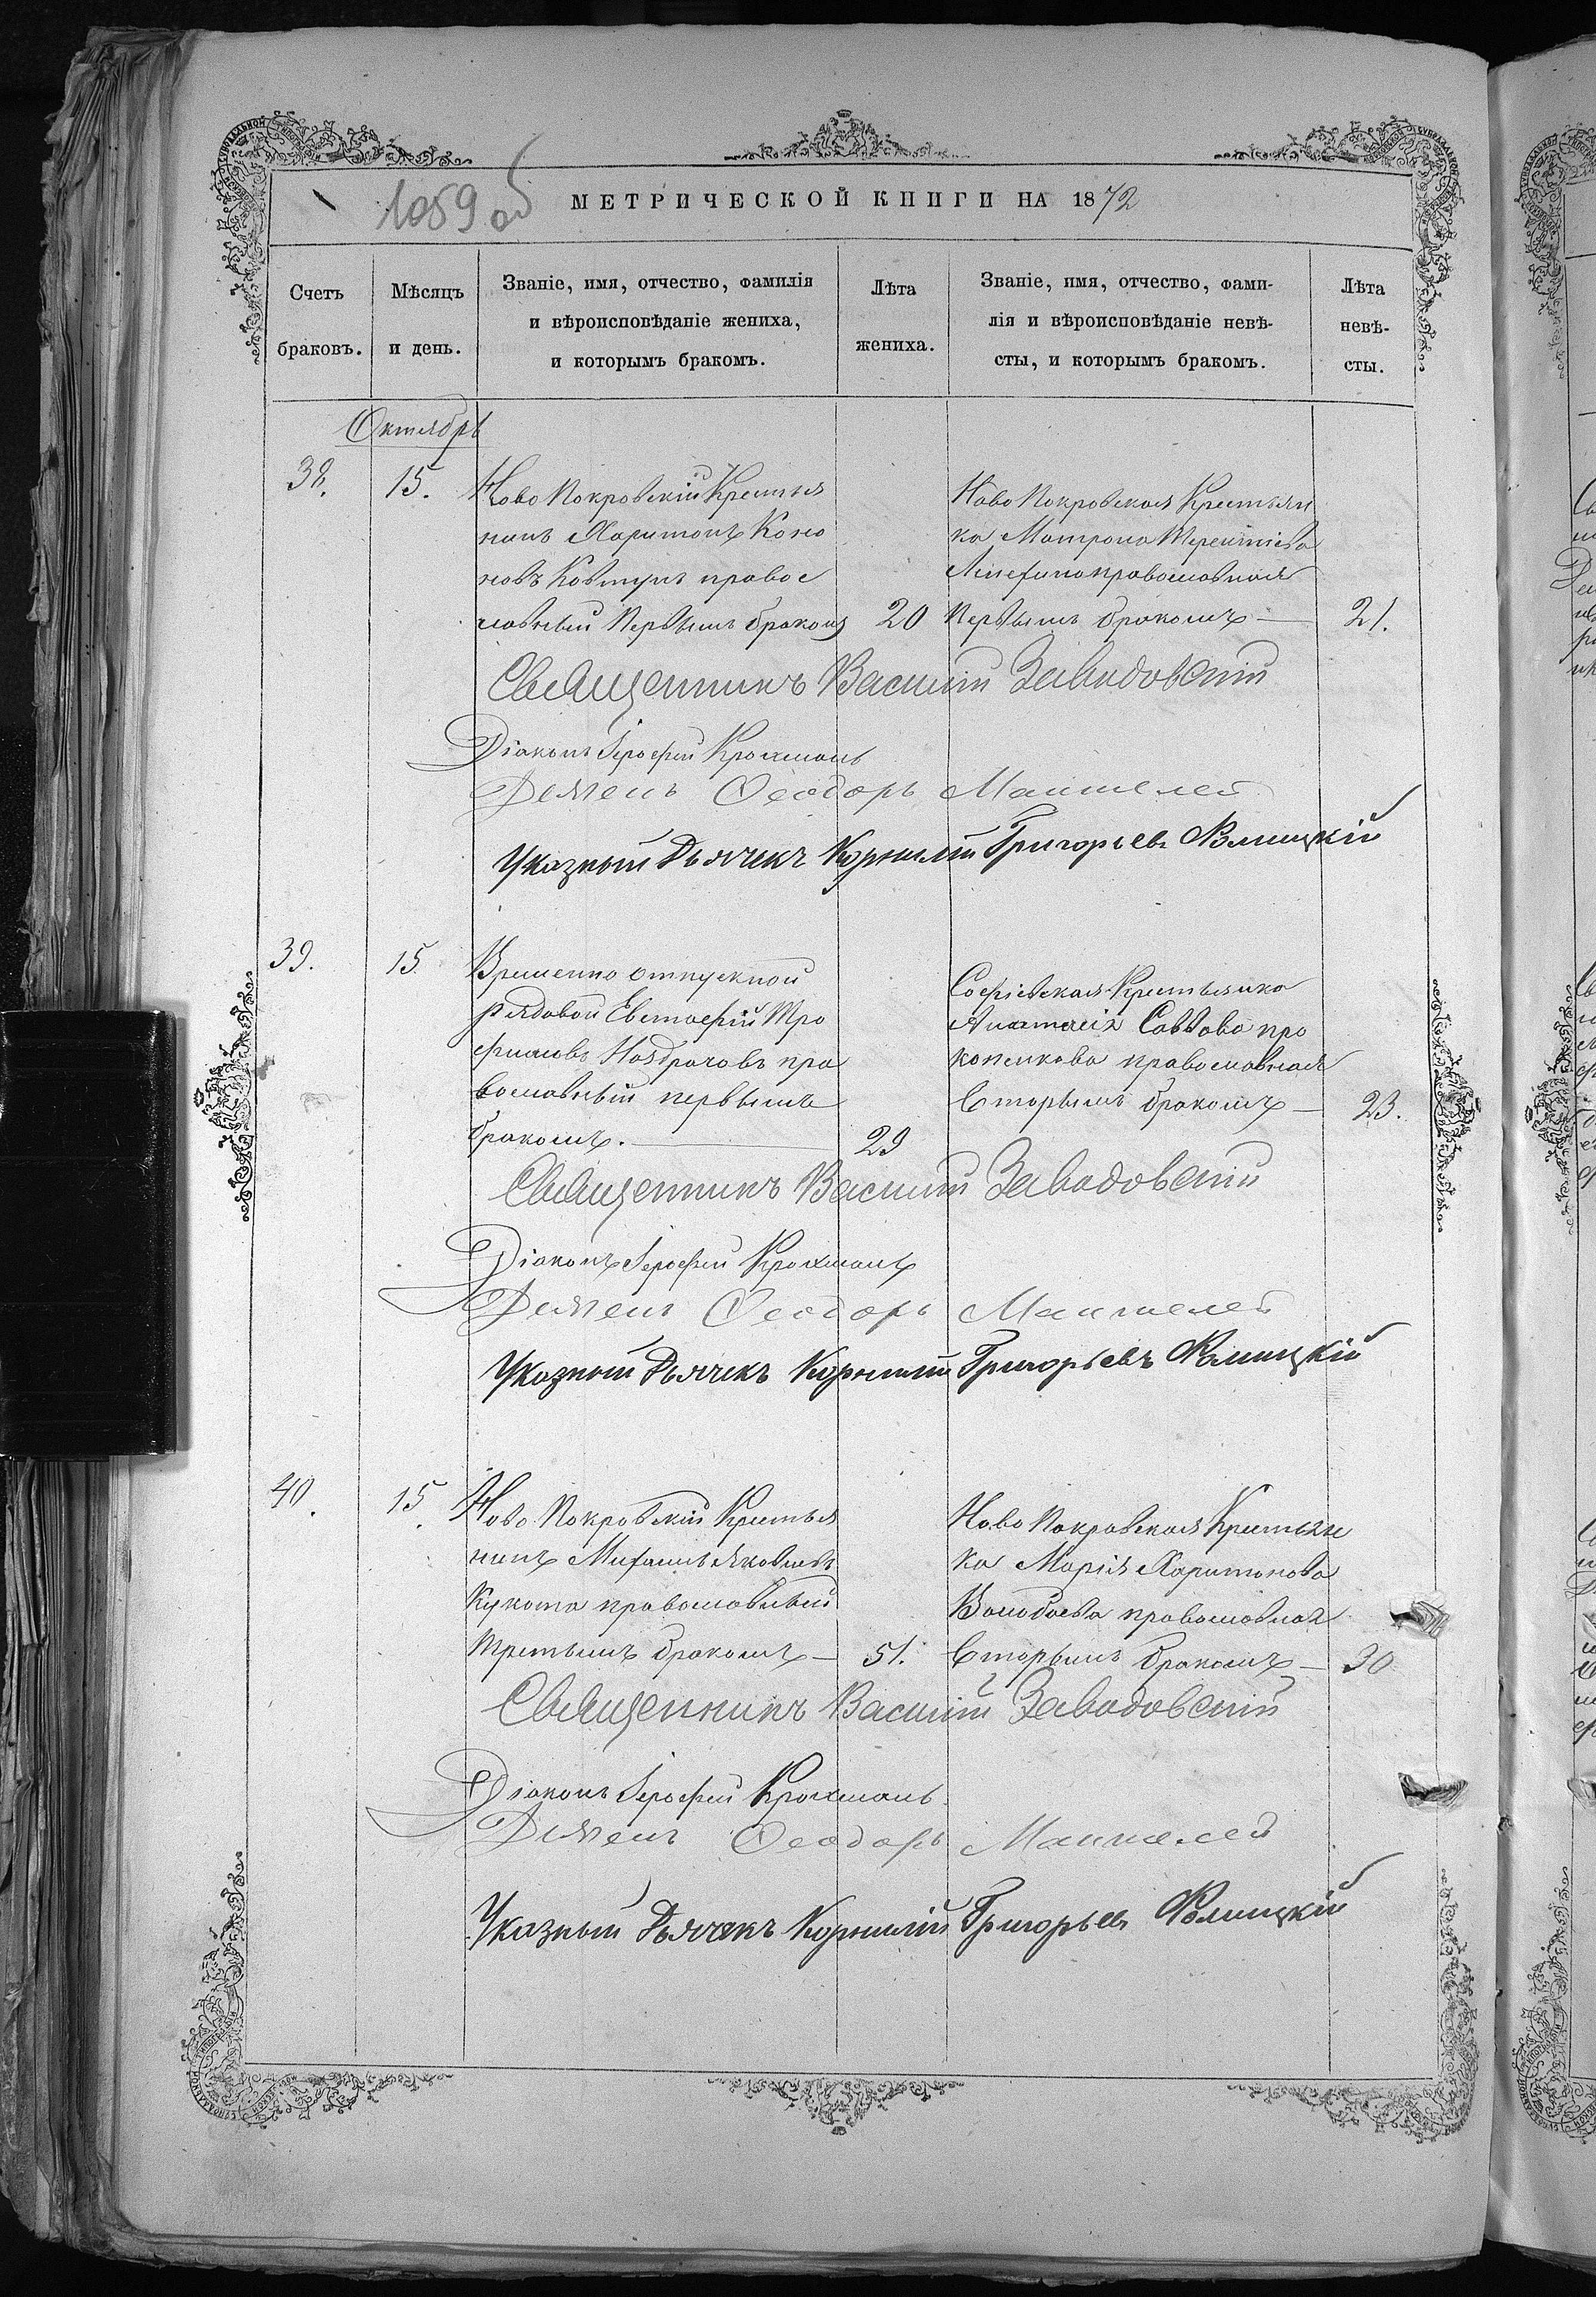 1059 об
МЕТРИЧЕСКОЙ КНИГИ НА 1872
Счетъ браковъ.
Мѣсяцъ и день.
Званіе, имя, отчество, фамилія
и вѣроисповѣданіе жениха,
и которымъ бракомъ.
Лѣта жениха.
Званіе, имя, отчество, фами-
лія и вѣроисповѣданіе невѣ-
сты, и которымъ бракомъ.
Лѣта невѣ-
сты.
Октябрь
38.
15.
Ново Покровскій Крестья
нинъ Харитонъ Коно
новъ Ковтунъ правос
лавный первымъ бракомъ
20
Ново Покровская Крестьян
ка Матрона Терентіева
православная
первымъ бракомъ —
21.
Священникъ Василій Заводовскій
Діаконъ Іерофей Крохмаль
Феодоръ
Указный Дьячекъ Корнилій Григорьевъ
39.
15
Временно отпускной
рядовой Евстафій Тро
фимовъ Ноздрачовъ пра
вославный первымъ
бракомъ. —
29
Софіевская Крестьянка
Анастасія Саввова про
копенкова православная
вторымъ бракомъ —
23.
Священникъ Василій Заводовскій
Діаконъ Іерофей Крохмаль
Феодоръ
Указный Дьячекъ Корнилій Григорьевъ
40.
15.
Ново Покровскій Крестья
нинъ Михаилъ Яковлевъ
Кукота православный
третьимъ бракомъ —
51.
Ново Покровская Крестьян
ка Марія Харитонова
православная
вторымъ бракомъ —
30
Священникъ Василій Заводовскій
Діаконъ Іерофей Крохмаль
Феодоръ
Указный Дьячекъ Корнилій Григорьевъ